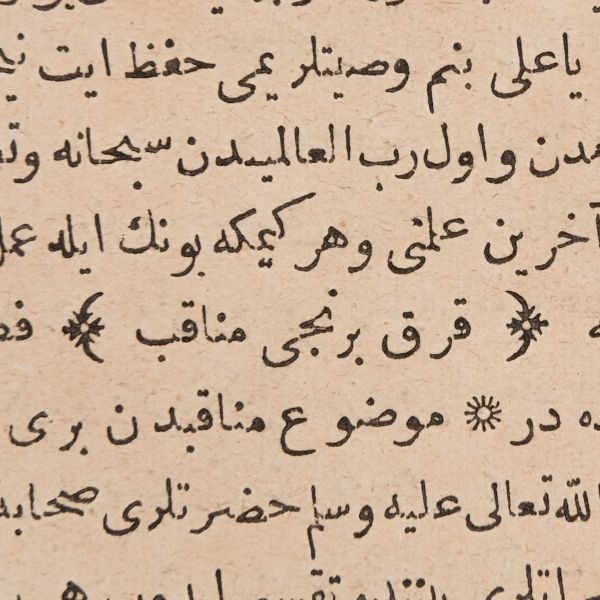 یاعلی بنم وصیتلر یمی حفظ ایت
واول رب العالمیندن سبحانه
آخرین علمنی وهر کیمکه بونك ایله عمل
﴿ قرق برنجی مناقب ﴾
ده در ۞ موضوع مناقبدن بری
الله تعالی علیه وسلم حضرتلری صحابه